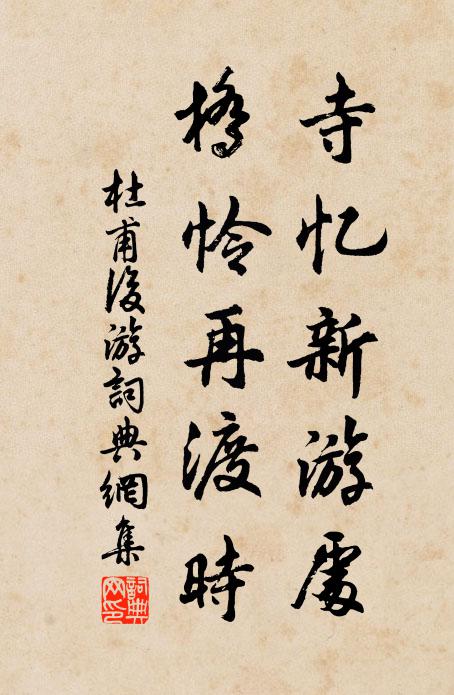 寺忆新游處
橋怜再渡時
杜甫後游詞典網集
詞典網印